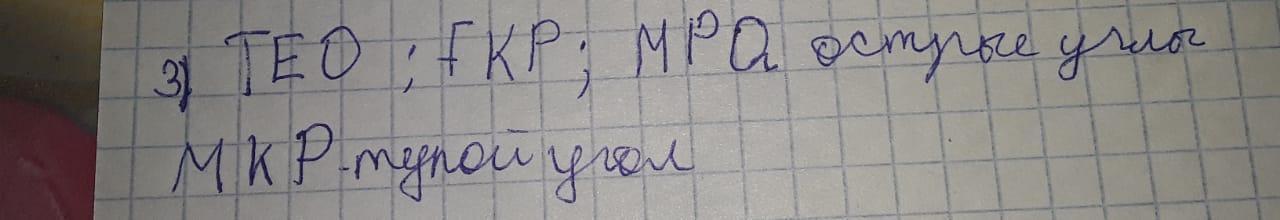 3) TEO ; FKP; MPQ острые углы
MKP-тупой угол